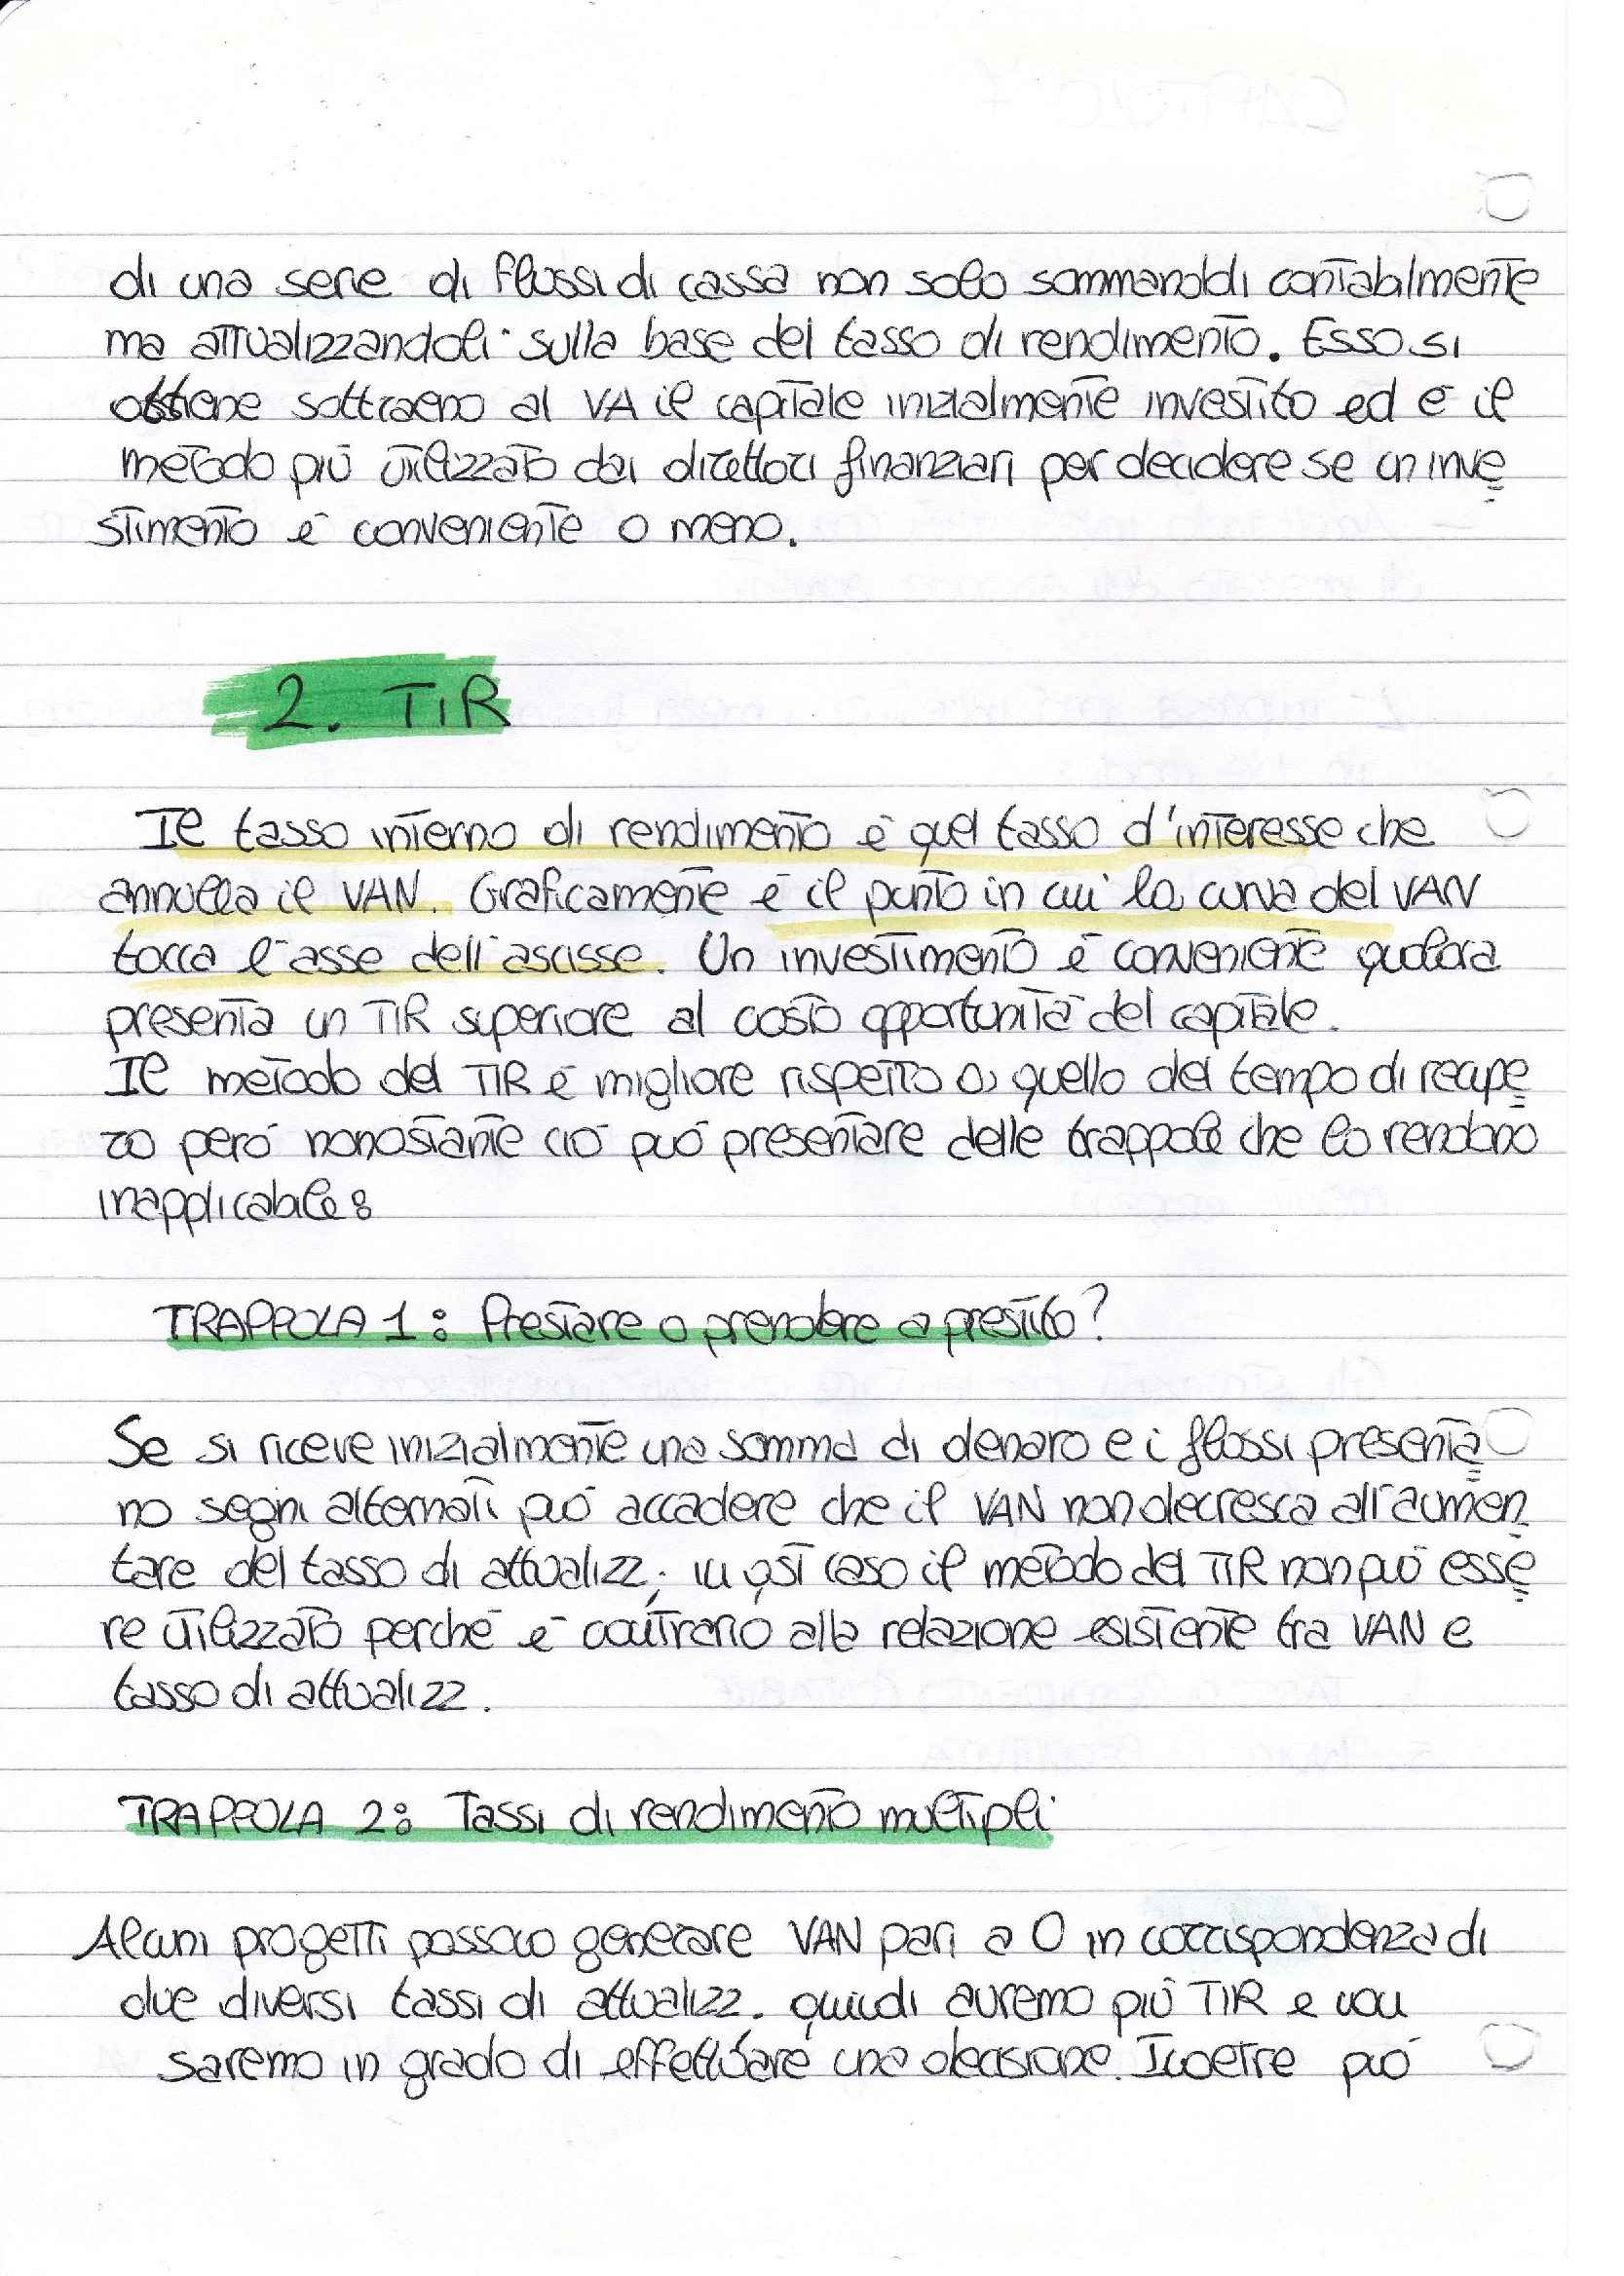 di una serie di flussi di cassa non solo sommandoldi contabilmente
ma attualizzandoli sulla base del tasso di rendimento. Esso si
ottiene sottraeno al VA il capitale inizialmente investito ed è il
metodo più utilizzato dai direttori finanziari per decidere se un inve
stimento è conveniente o meno.
2. TIR
Il tasso interno di rendimento è quel tasso d'interesse che
annulla il VAN. Graficamente è il punto in cui la curva del VAN
tocca l'asse dell'ascisse. Un investimento è conveniente qualora
presenta un TIR superiore al costo opportunità del capitale.
Il metodo del TIR è migliore rispetto a quello del tempo di recupe
ro però nonostante ciò può presentare delle trappole che lo rendono
inapplicabile:
TRAPPOLA 1: Prestare o prendere a prestito?
Se si riceve inizialmente una somma di denaro e i flussi presenta
no segni alternati può accadere che il VAN non decresca all'aumen
tare del tasso di attualizz; in qsť caso il metodo del TIR non può esse
re utilizzato perché è contrario alla relazione esistente tra VAN e
tasso di attualizz.
TRAPPOLA 2: Tassi di rendimento multipli
Alcuni progetti possono generare VAN pari a 0 in corrispondenza di
due diversi tassi di attualizz. quindi avremo più TIR e non
saremo in grado di effettuare una decisione. Inoltre può